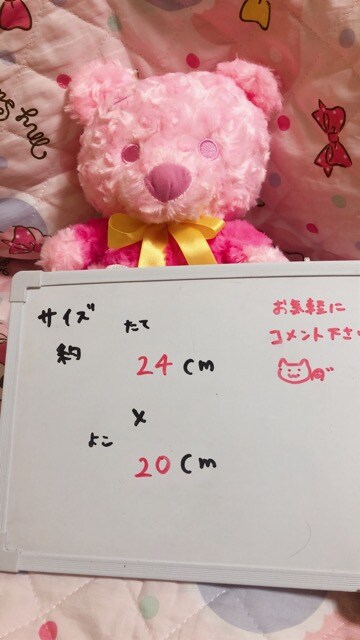 サイズ
約
たて
24cm
×
よこ
20cm
お気軽に
コメント下さい